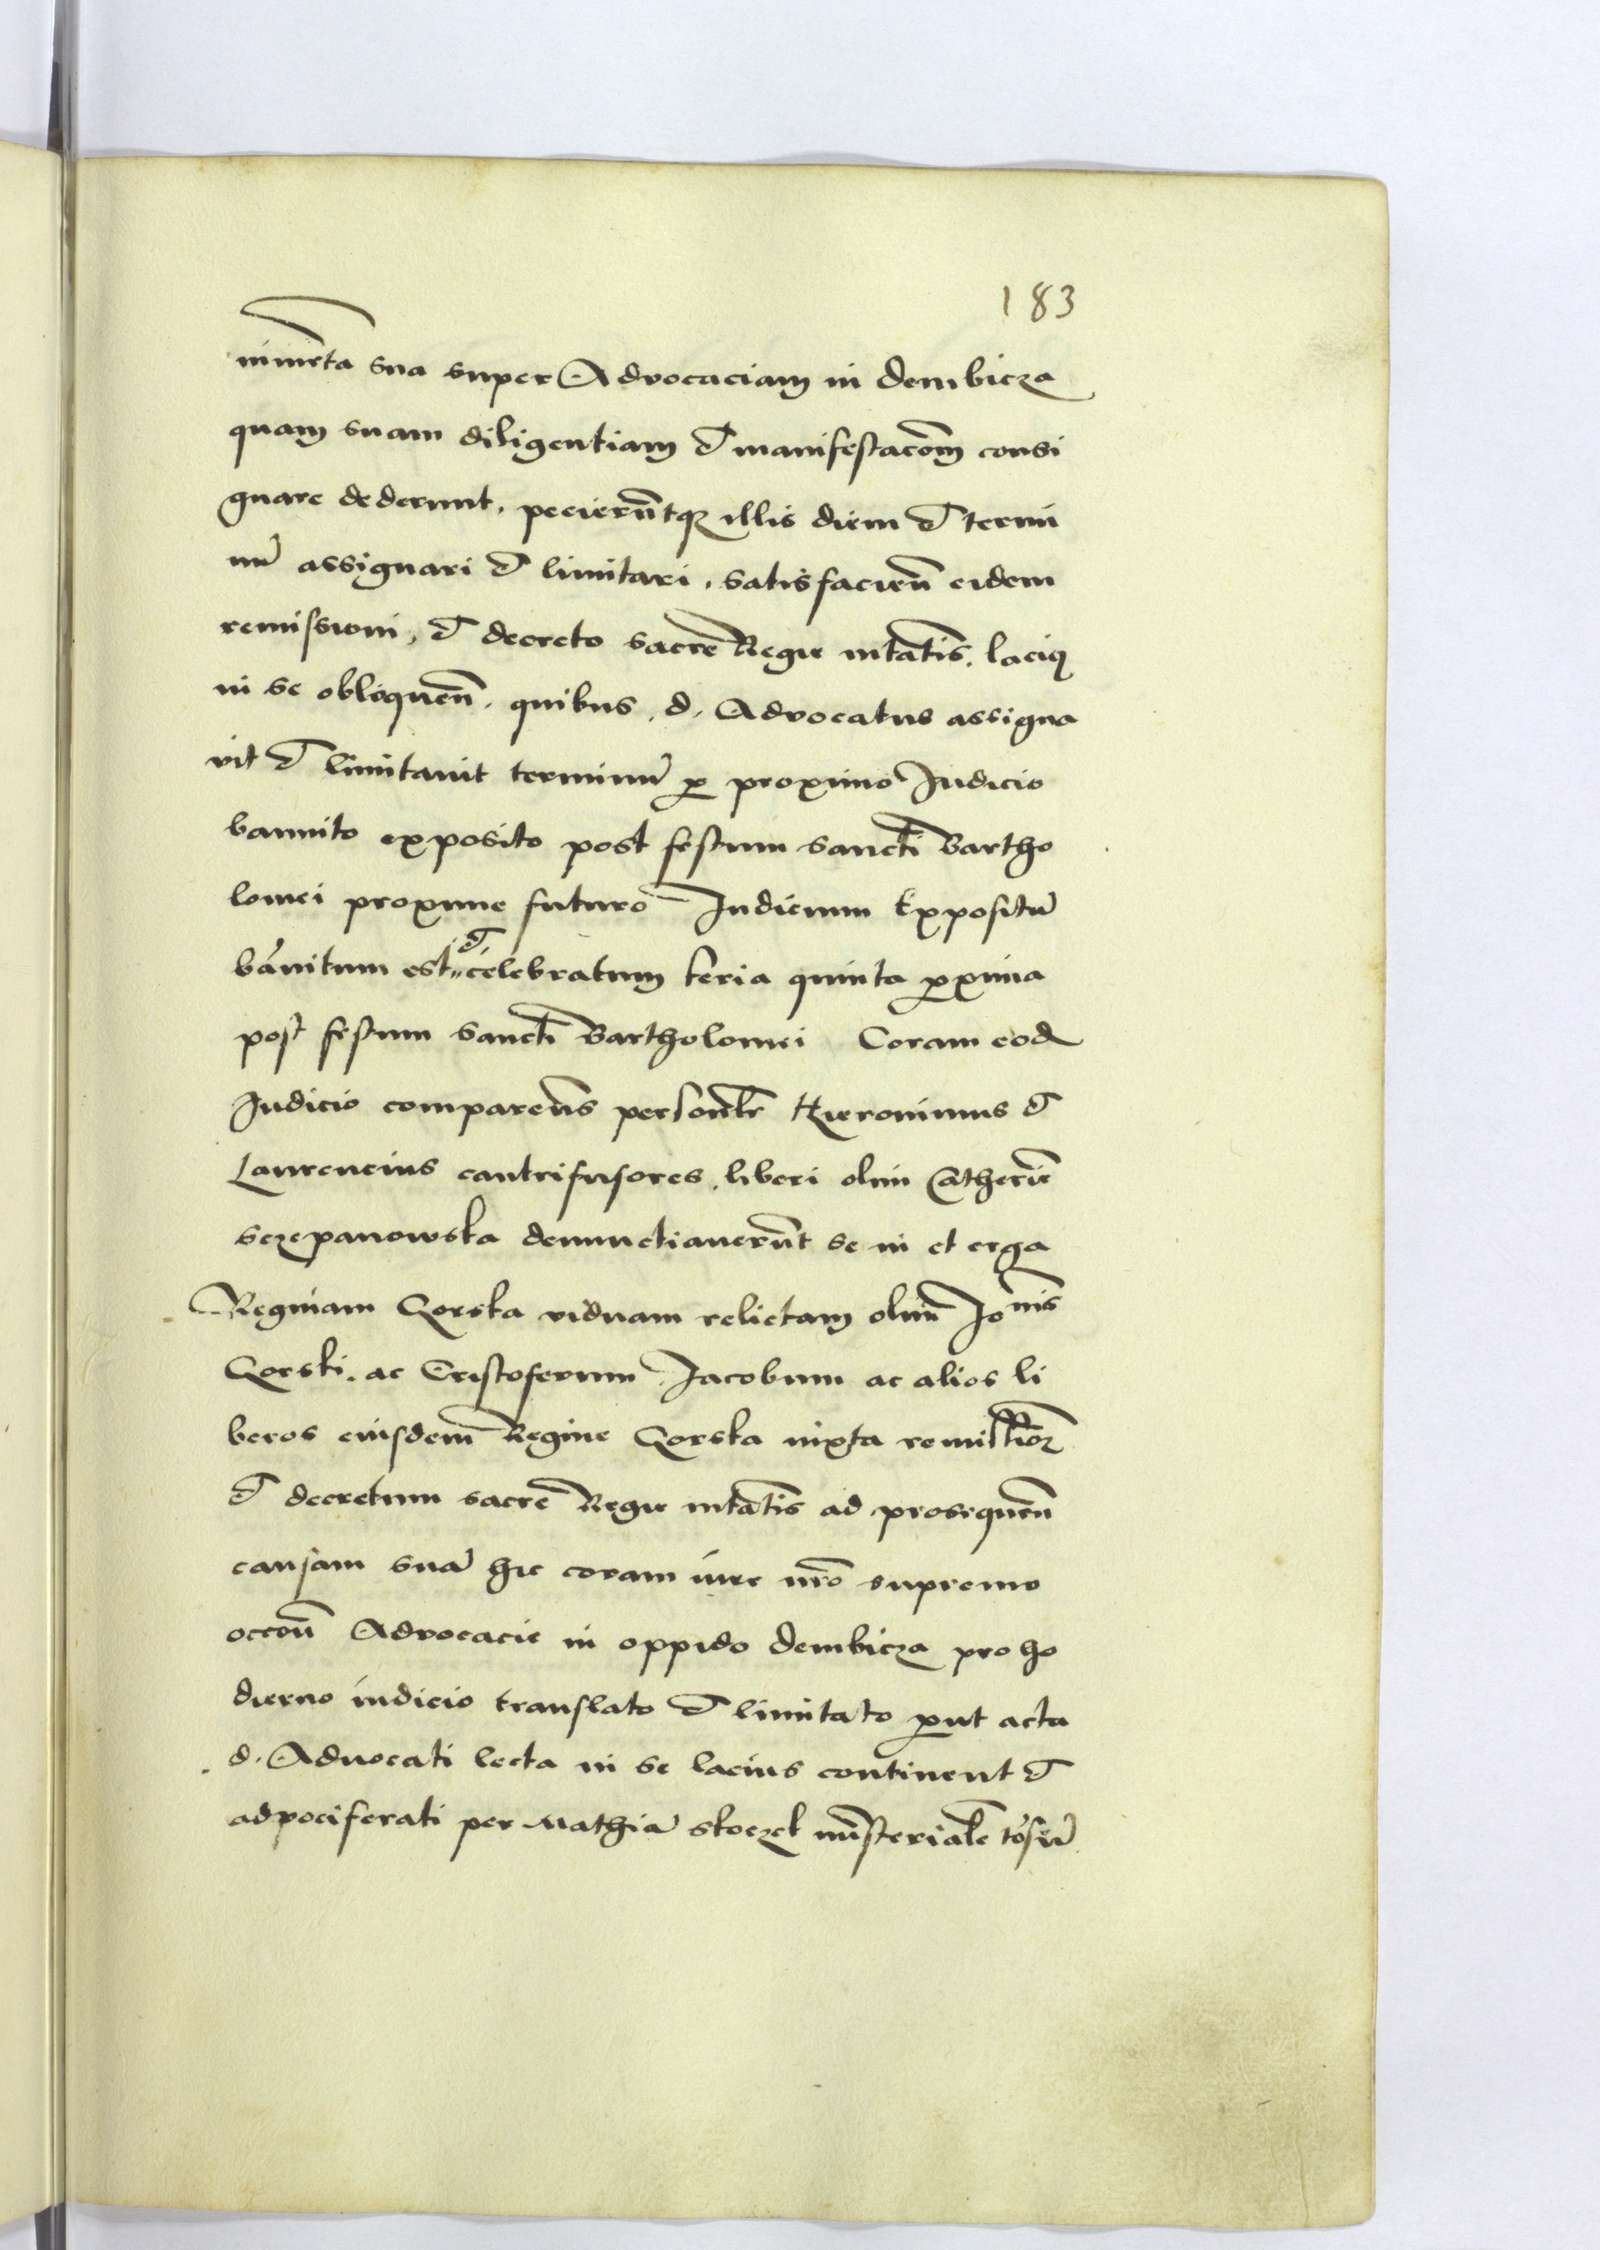 183
nimenta sua super Advocaciam in dembicza
quam suam diligentiam et manifestacom consi
gnare dederunt, pecieruntqz illis diem et termi
nu assignari et limitari, satisfacien eidem
remissioni, et decreto sacre Regie mtatis, lacius
in se obloquen. quibus. d. Advocatus assigna
vit et limitavit terminu p proximo Judicio
bannito exposito post festum sancti Bartho
lomei proxime futuro Judicium Expositu
banitum est et celebratum feria quinta pxima
post festum sancti Bartholomei Coram eod
Judicio comparens personlr Hieronimus et
Laurencius cantrifusores, liberi olim Catherine
sczepanowska denunctiaverunt se in et erga
Reginam Gorska viduam relictam olim Jonis
Gorski. ac Cristoferum Jacobum ac alios li
beros eiusdem Regine Gorska iuxta remissione
et decretum sacre Regie mtatis ad prosequen
causam sua hic coram iure nro supremo
occoe Advocacie in oppido dembicza pro ho
dierno iudicio translato et limitato put acta
d. Advocati lecta in se lacius continent et
adpociferati per Mathia skoczek ministeriale